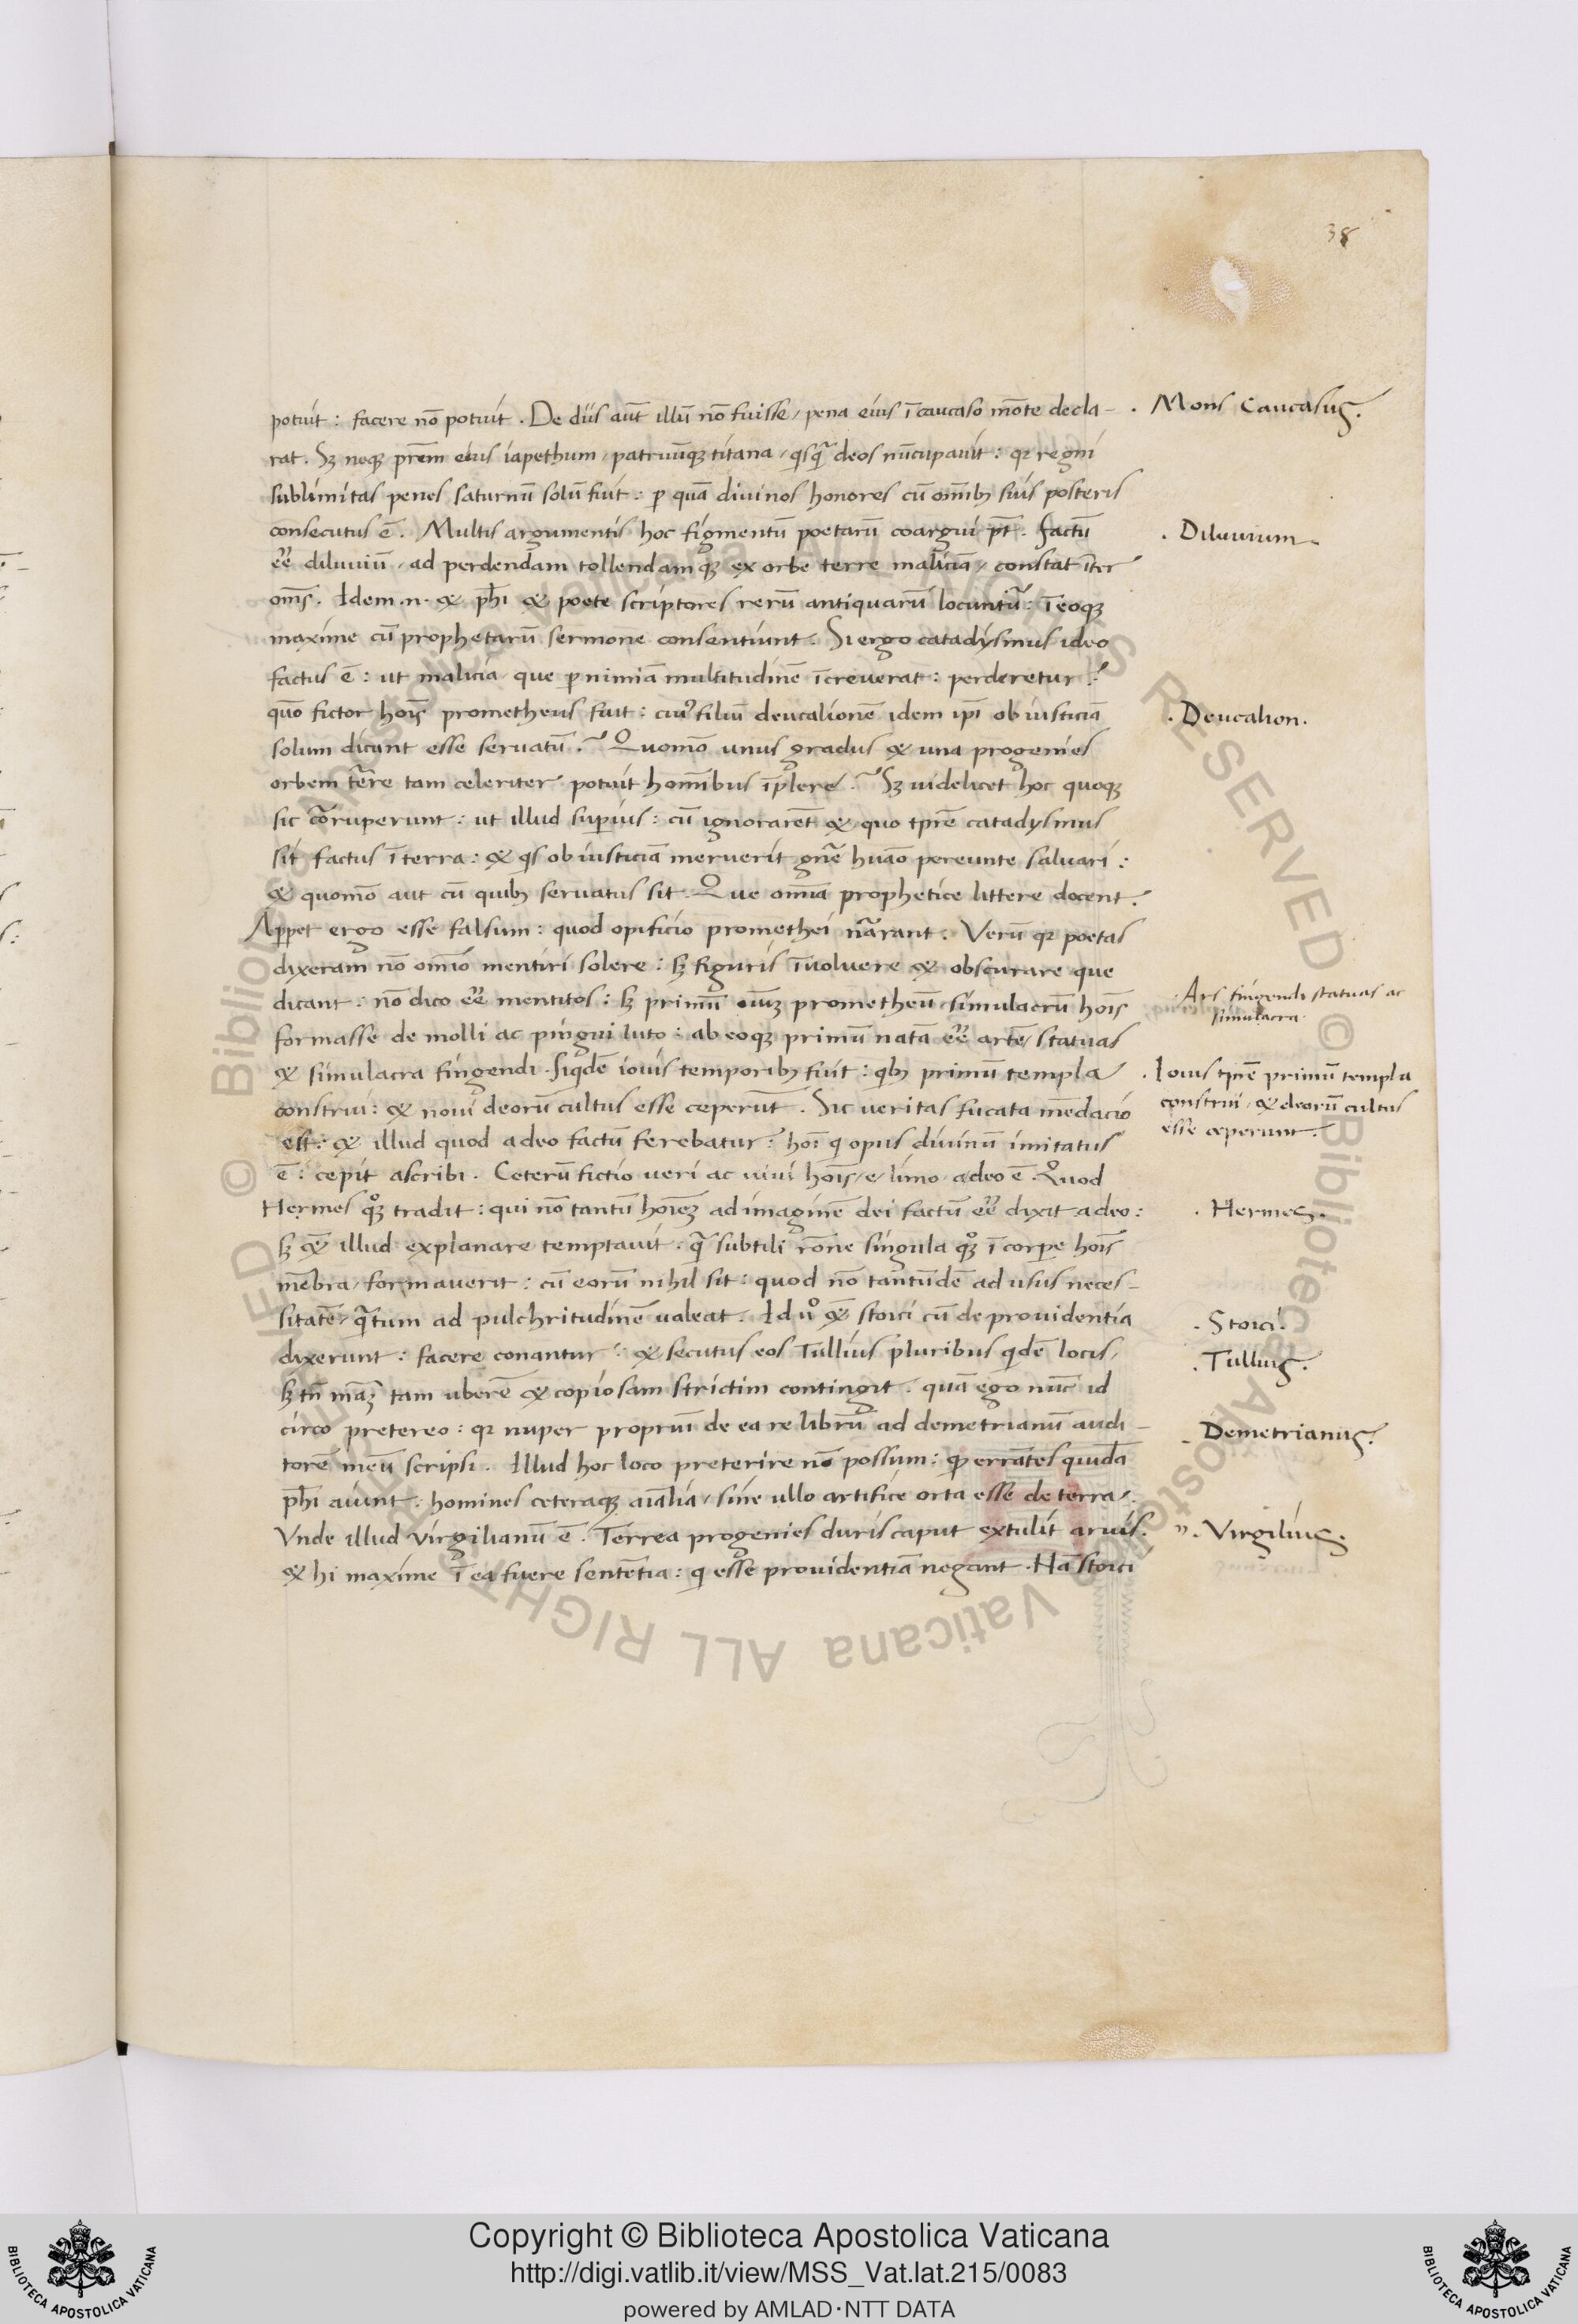 38
potuit: facere nō potuit. De diis aūt illū nō fuisse, pena eius ī caucaso mōte decla-
rat. Sꝫ neqꝫ prēm eius iapethum, patruūqꝫ titana, deos nūcupauit: qꝛ regni
sublimitas penes saturnū solū fuit: ꝑ quā diuinos honores cū omībꝫ suis posteris
consecutus ē. Multis argumentis hoc figmentū poetarū coargui pt̄. factū
eē diluuiū, ad perdendam tollendamqꝫ ex orbe terre maliciā, constat īter
om̄s. Idem .n. & ph̄i & poete scriptores rerū antiquarū locuntur̄: īeoqꝫ
maxime cū prophetarū sermone consentiunt. Si ergo catadysmus ideo
factus ē: ut malicia que ꝑ nimiā multitudinē īcreuerat: perderetur?
quō fictor hoīs prometheus fuit: cuiꝰ filiū deucalionē idem ip̄i ob iusticiā
solum dicunt esse seruatū. Quomō unus gradus & una progenies
orbem terre tam celeriter potuit homībus īplere? Sꝫ uidelicet hoc quoqꝫ
sic corruperunt: ut illud superius: cū ignorarēt & quo tp̄re catadysmus
sit factus ī terra: & qs ob iusticiā meruerit gn̄e huāo pereunte saluari:
& quomō aut cū quibꝫ seruatus sit. Que omīa prophetice littere docent.
Apꝑet ergo esse falsum: quod opificio promethei nārrant. Verū qꝛ poetas
dixeram nō omīo mentiri solere: sꝫ figuris īuoluere & obscurare que
dicant: nō dico eē mentitos: sꝫ primū oīuꝫ prometheū simulacrū hoīs
formasse de molli ac pingui luto: ab eoqꝫ primū natā eē artē statuas
& simulacra fingendi. siqdē iouis temporibꝫ fuit: qbꝫ primū templa
construi: & noui deorū cultus esse ceperūt. Sic ueritas fucata mēdacio
est: & illud quod a deo factū ferebatur: hoī q opus diuinū imitatus
ē: cepit ascribi. Ceterū fictio ueri ac uiui hoīs, e, limo a deo ē. Quod
Hermes qꝫ tradit: qui nō tantū hoīeꝫ ad imaginē dei factū eē dixit a deo:
sꝫ & illud explanare temptauit. qā subtili rōne singula qꝫ ī corpe hoīs
mēbra, formauerit: cū eorū nihil sit: quod nō tantūdē ad usus neces-
sitatē, qātum ad pulchritudinē ualeat. Id uº & stoici cū de prouidentia
dixerunt: facere conantur: & secutus eos Tullius pluribus qdē locis,
sꝫ tn̄ māꝫ tam uberē & copiosam strictim contingit. quā ego nūc id
circo pretereo: qꝛ nuper propriū de ea re librū ad demetrianū audi-
torē meū scripsi. Illud hoc loco preterire nō possum: qꝓ errātes quidā
ph̄i aiunt: homines ceteraqꝫ aīalia, sine ullo artifice orta esse de terra,
Vnde illud Virgilianū ē. Terrea progenies duris caput extulit aruis.
& hi maxime ī ea fuere sentētia: q esse prouidentiā negant. Nā stoici
. Mons Caucasus.
. Diluuium.
. Deucalion.
. Ars fingendi statuas ac
simulacra.
. Iouis tp̄re primū templa
construi, & deorū cultus
esse ceperunt.
. Hermes.
. Stoici.
. Tullius.
. Demetrianus.
. Virgilius.
© Biblioteca Apostolica Vaticana ALL RIGHTS RESERVED © Biblioteca Apostolica Vaticana ALL RIGHTS RESERVED
Copyright © Biblioteca Apostolica Vaticana
http://digi.vatlib.it/view/MSS_Vat.lat.215/0083
powered by AMLAD·NTT DATA
BIBLIOTECA APOSTOLICA VATICANA
BIBLIOTECA APOSTOLICA VATICANA